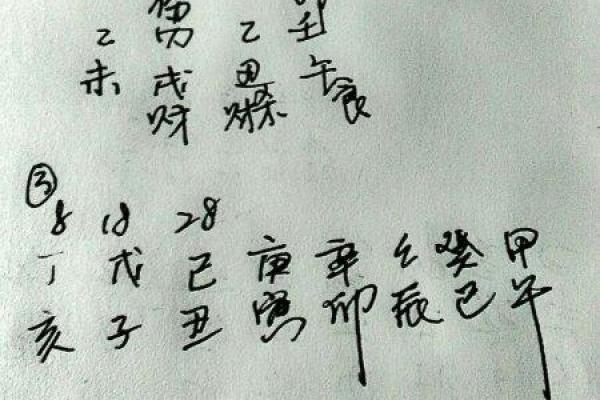 伤 卯
乙 丙 乙 壬
未 戌 丑 午
财 财杀 食
③
8 18 28
丁 戊 己 庚 辛 壬 癸 甲
亥 子 丑 寅 卯 辰 巳 午